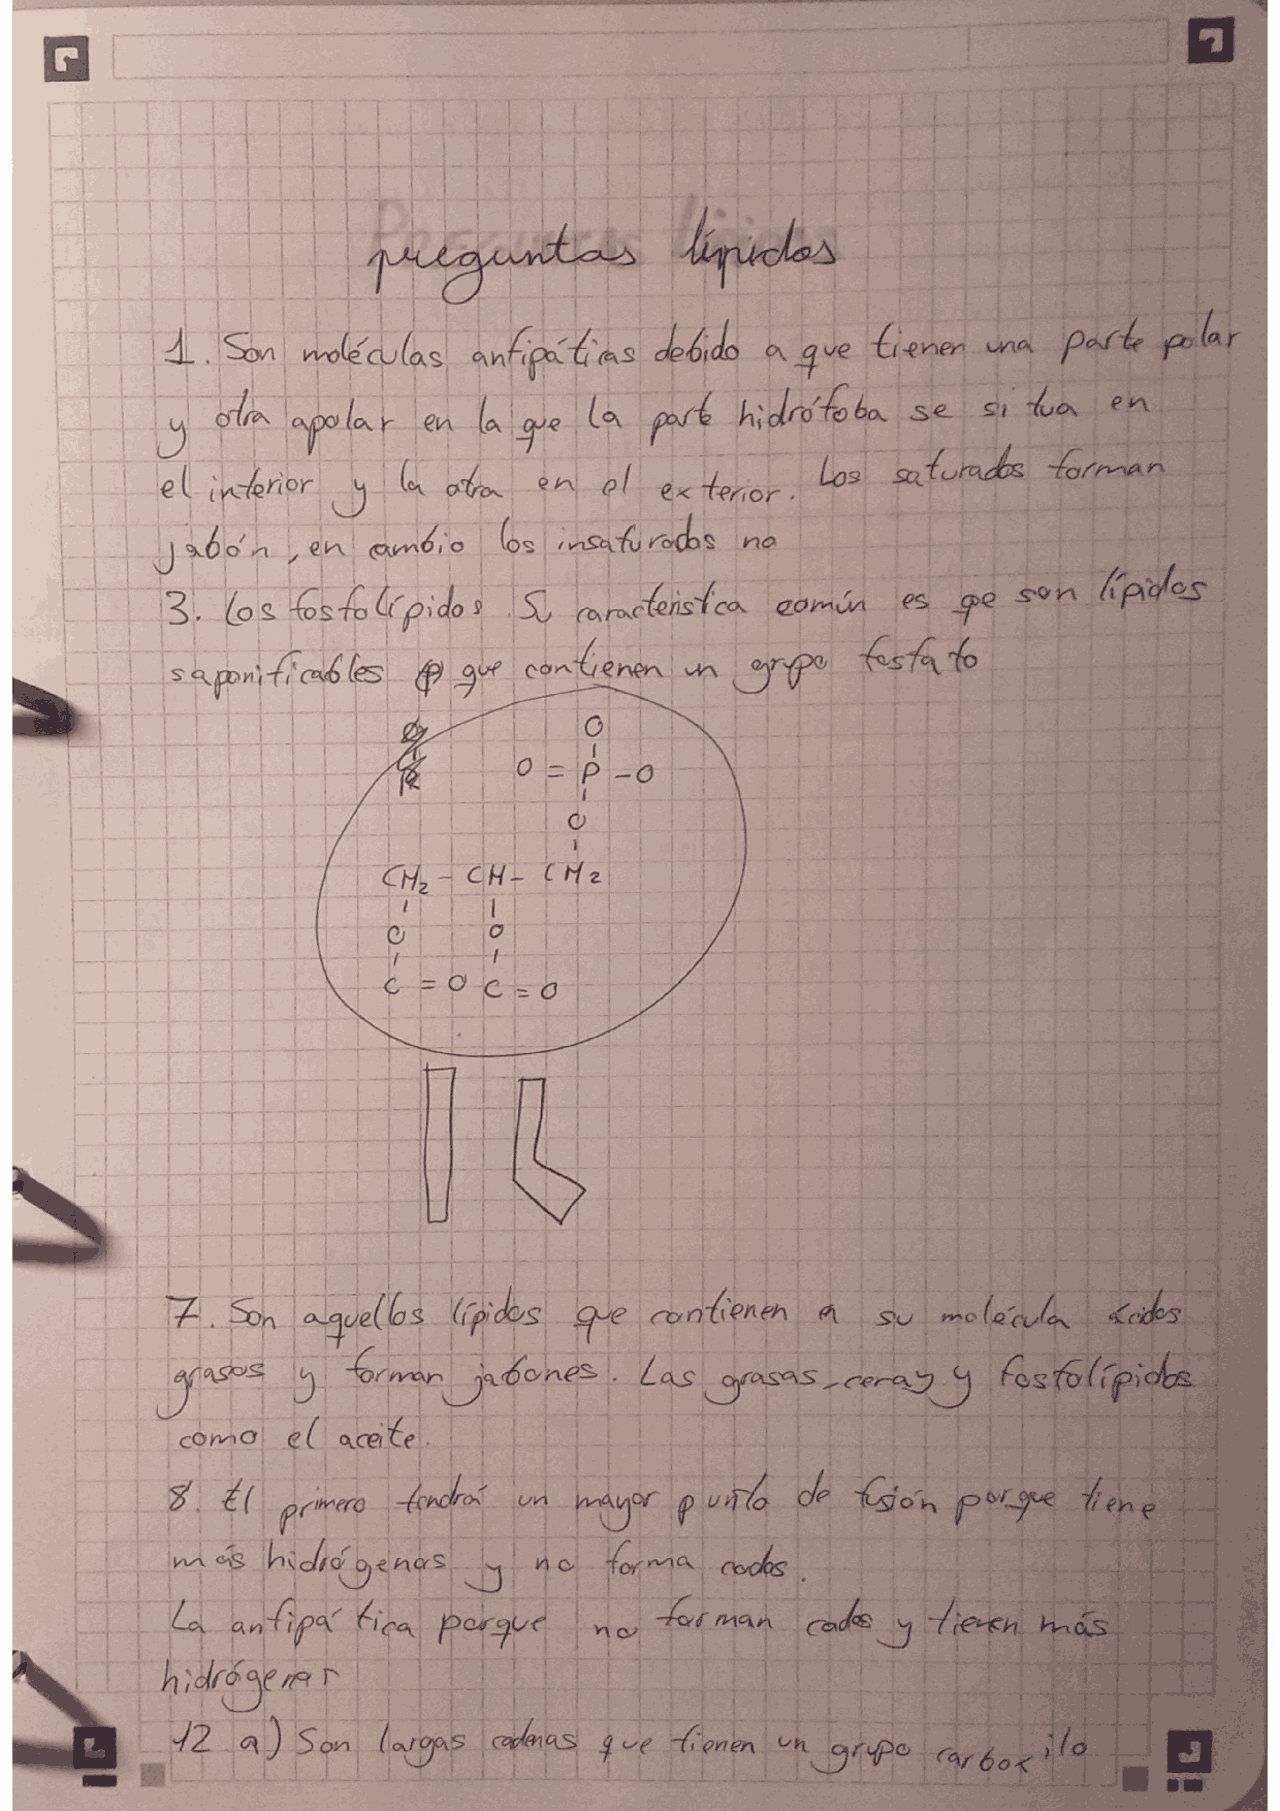 preguntas lípidos
1. Son moléculas anfipáticas debido a que tienen una parte polar
y otra apolar en la que la parte hidrófoba se situa en
el interior y la otra en el exterior. Los saturados forman
jabón, en cambio los insaturados no
3. Los fosfolípidos. Su caracteristica común es qe son lípidos
saponificables que contienen un grupo fosfato
O
O = P - O
O
CH2 - CH - CH2
O O
C = O C = O
7. Son aquellos lípidos que contienen en su molécula ácidos
grasos y forman jabones. Las grasas, ceras y fosfolípidos
como el aceite.
8. El primero tendrá un mayor punto de fusión porque tiene
más hidrógenos y no forma codos.
La anfipática porque no forman codos y tienen más
hidrógenos
12 a) Son largas cadenas que tienen un grupo carboxilo